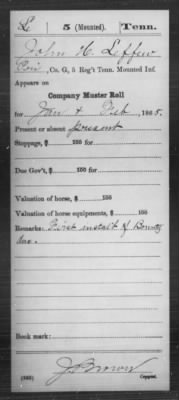 L | 5 (Mounted). | Tenn.
John H. Leffew
Pvt, Co. G, 5 Reg't Tenn. Mounted Inf.
Appears on
Company Muster Roll
for Jan & Feb, 1865.
Present or absent present
Stoppage, $ 100 for
Due Gov't, $ 100 for
Valuation of horse, $ 100
Valuation of horse equipments, $ 100
Remarks: First instalt of Bounty
due.
Book mark:
J Brown
(358) Copyist.